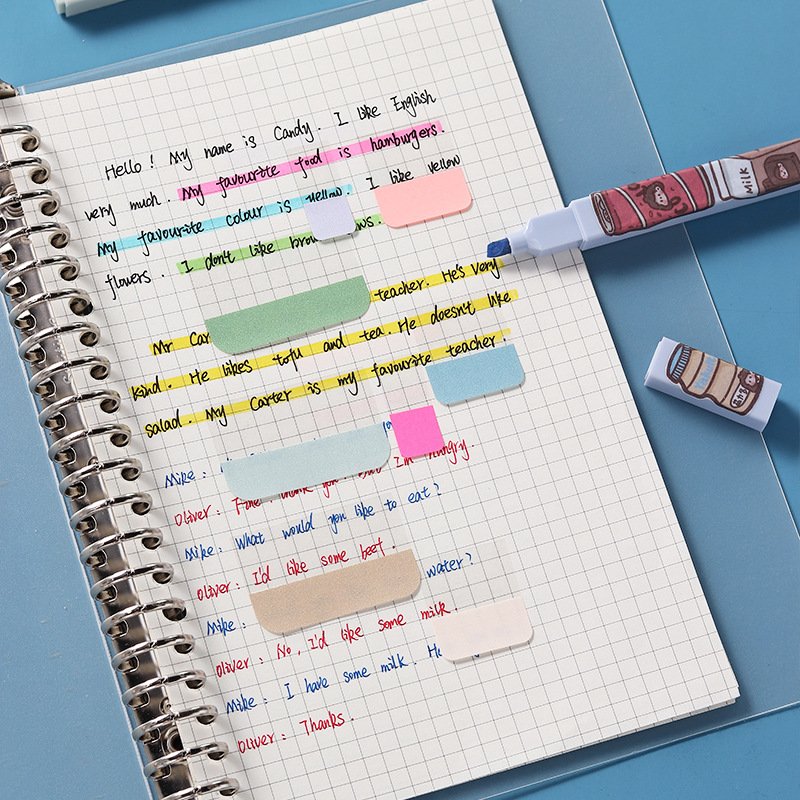 Hello! My name is Candy. I like English
very much. My favourite food is hamburgers.
My favourite colour is yellow. I like yellow
flowers. I don't like brow ws.
Mr Car teacher. He's very
kind. He likes tofu and tea. He doesn't like
salad. My Carter is my favourite teacher.
Mike:
Oliver: Fine! thank you! But I'm hungry.
Mike: What would you like to eat?
Oliver: I'd like some beef.
Mike: water?
Oliver: No, I'd like some milk.
Mike: I have some milk. He
Oliver: Thanks.
Milk